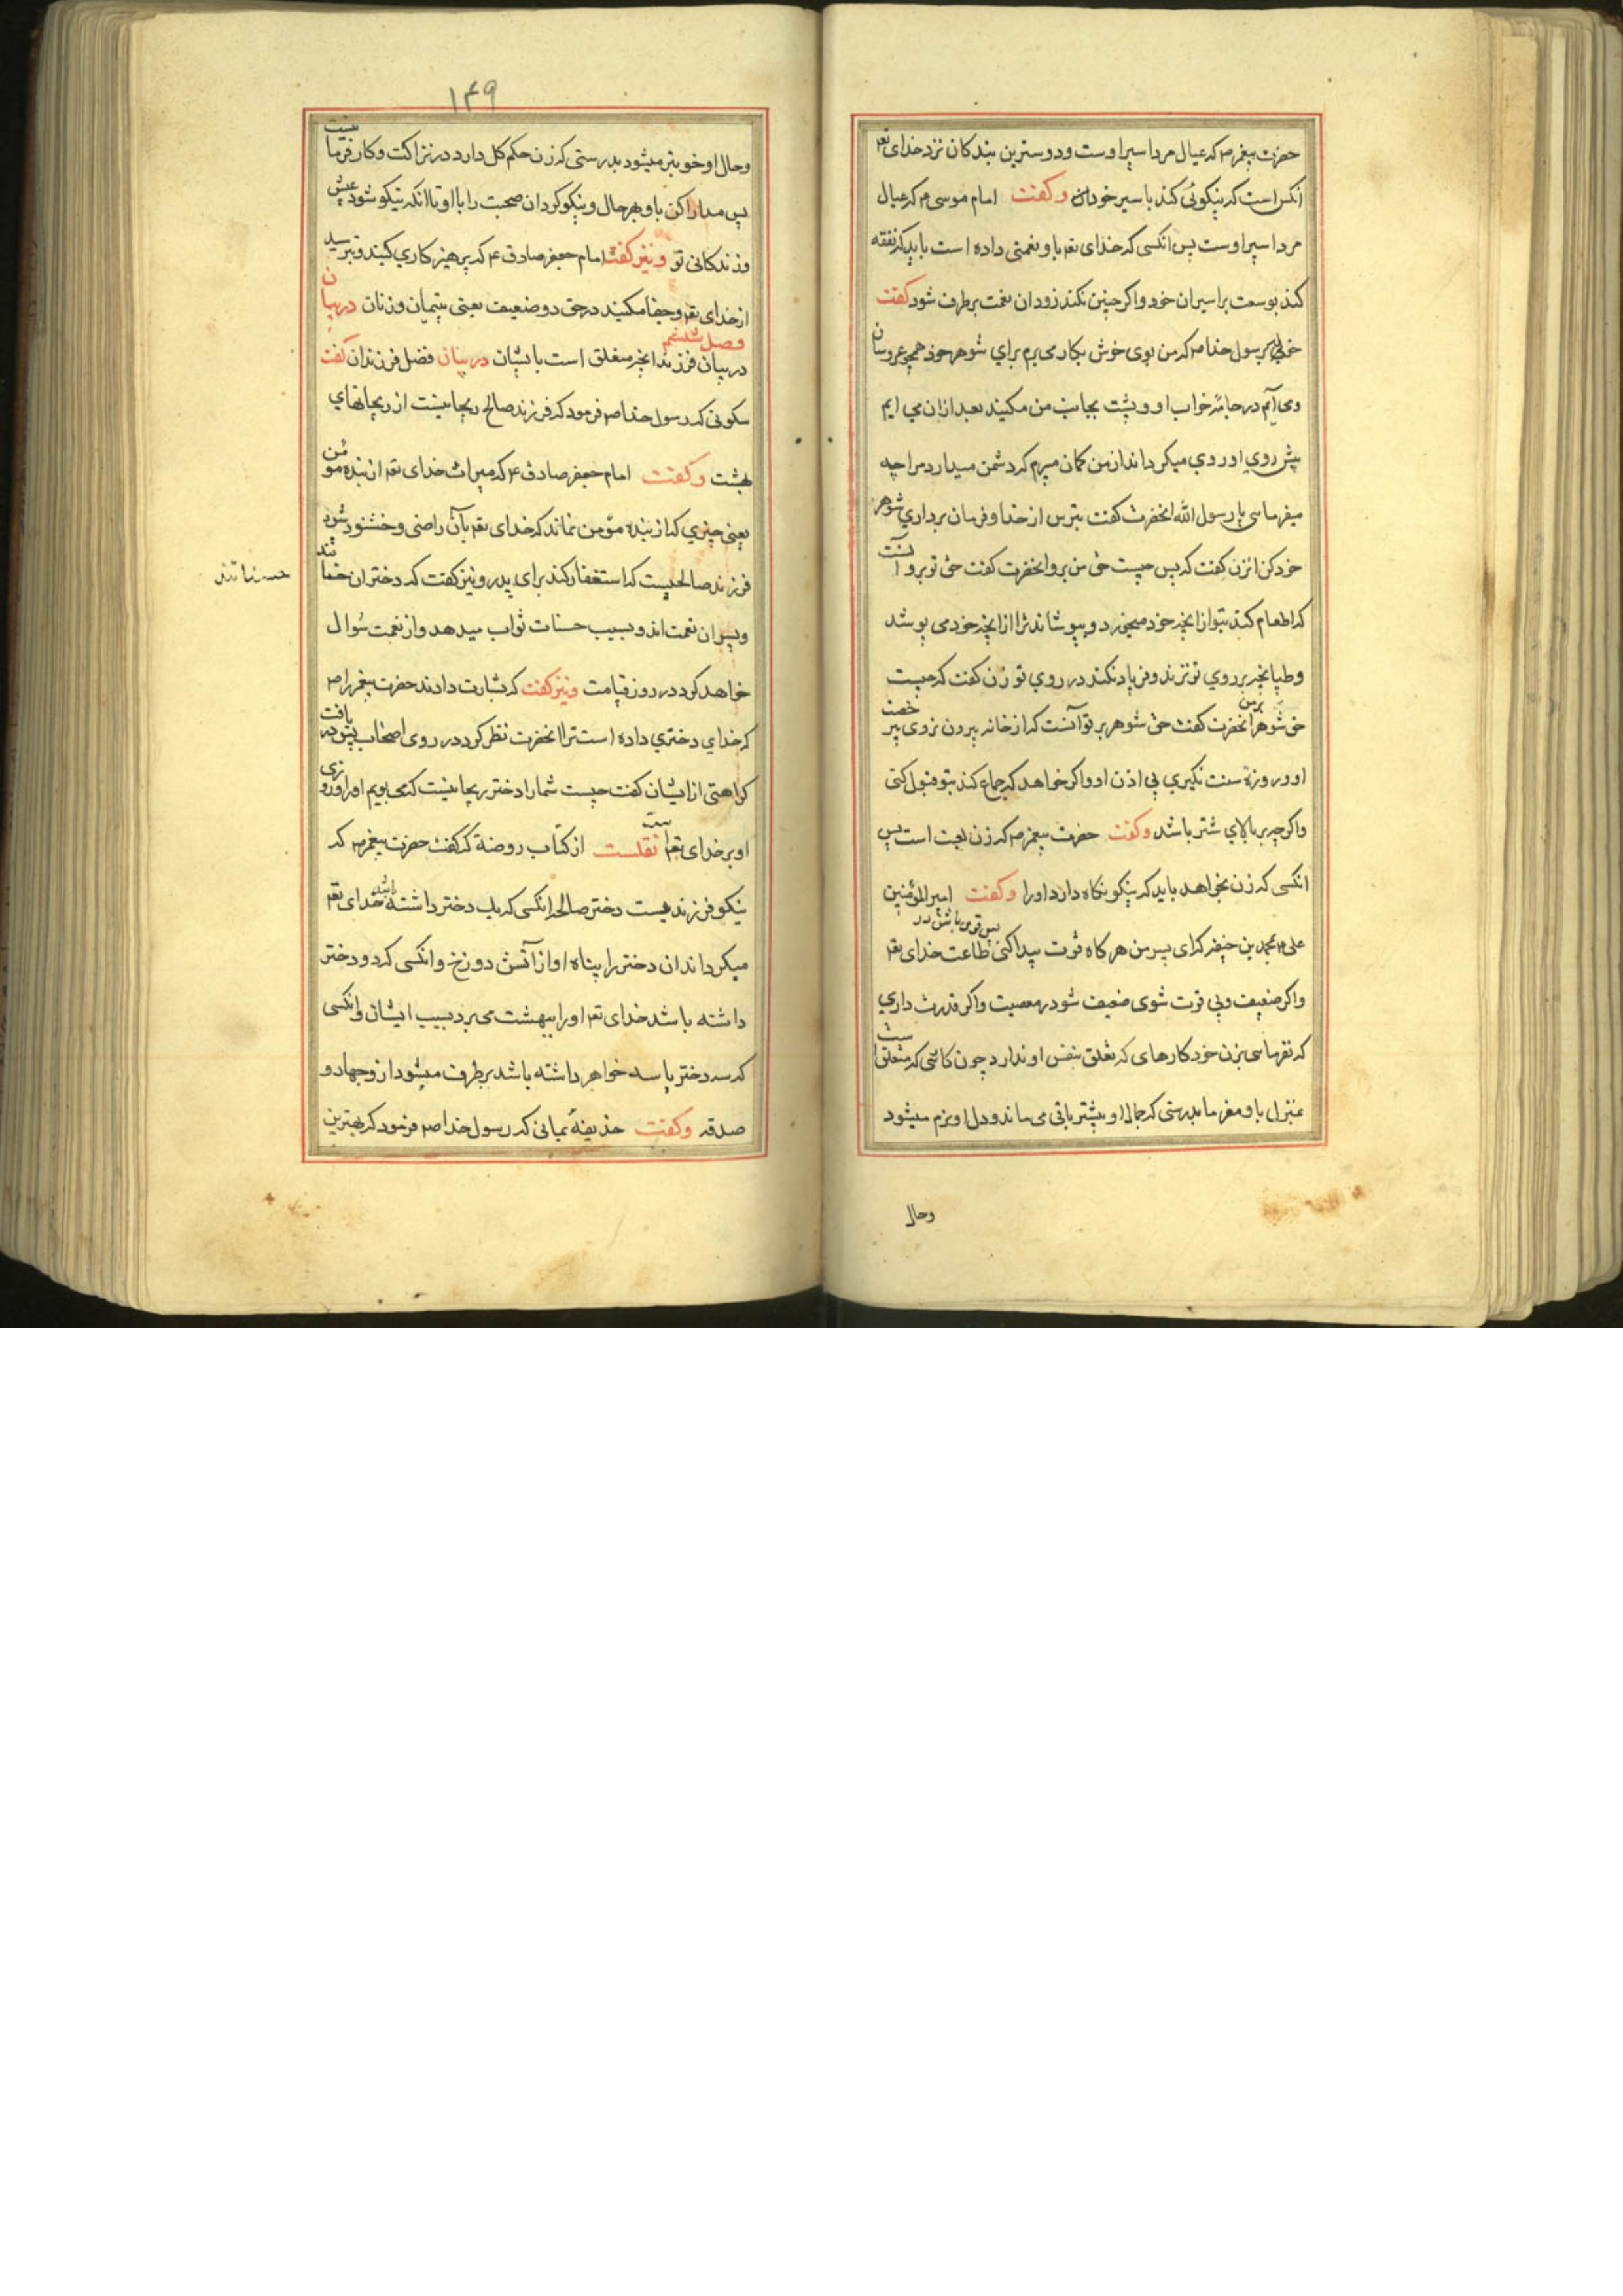 حضرت پیغمبر ص که عیال مرد اسیر اوست و دوسترین بندکان نزد خدای تع
انکس است که نیکوئی کند با سیر خودان وکفت امام موسی ع که عیال
مرد اسیر اوست پس انکسی که خدای تع باو نعمتی داده است باید که نفقه
کند بوسعت بر اسیران خود واکر چنین نکند زود ان نعمت برطرف شود کفت
برسول خدا ص که من بوی خوش بکار می برم برای شوهر خود همچو عروسان
ومی آیم در جامه خواب او و پشت بجانب من میکند بعد ازان می ایم
پیش روی او روی میکرداند از من کمان میبرم که دشمن میدارد مرا چه
میفرمائی یا رسول الله انحضرت کفت بترس از خدا و فرمان برداری شوهر
خود کن انزن کفت که پس چیست حق من برو انحضرت کفت حق تو برو آنست
که اطعام کند بتو از انچه خود میخورد و بپوشاند ترا از انچه خود می پوشد
وطپانچه بر روی تو نزند و فریاد نکند در روی تو زن کفت که چیست
حق شوهر برمن انحضرت کفت حق شوهر بر تو آنست که از خانه بیرون نروی بیرخصت
او و روزۀ سنت نگیری بی اذن او واکر خواهد که جماع کند بتو قبول کنی
واکر چه بر بالای شتر باشد وکفت حضرت پیغمبر ص که زن لعبت است پس
انکسی که زن بخواهد باید که نیکو نکاه دارد اورا وکفت امیر المؤمنین
علی ع بمحمد بن حنیفه که ای پسر من هر کاه قوت پیدا کنی پس قوی باش در طاعت خدای تع
واکر ضعیف وبی قوت شوی ضعیف شو در معصیت واکر قدرت داری
که نفرمائی بزن خود کارهای که تعلق بنفس او ندارد چون کائی که متعلق است
بمنزل باو مفرما بدرستی که جمال او بیشتر باقی می ماند ودل او نرم میشود
وحال
۱۴۹
وحال او خوبتر میشود بدرستی که زن حکم کل دارد در نزاکت وکار فرما نیست
پس مدارا کن باو بهر حال ونیکو کردان صحبت را با او تا انکه نیکو شود عیش
وزندکانی تو ونیز کفت امام جعفر صادق ع که پرهیزکاری کنید وبترسید
از خدای تع وجفا مکنید در حق دو ضعیف یعنی یتیمان وزنان در بیان
فصل ششم
در بیان فرزند انچه متعلق است بایشان در بیان فضل فرزندان کفت
سکونی که رسول خدا ص فرمود که فرزند صالح ریحانیست از ریحانهای
بهشت وکفت امام جعفر صادق ع که میراث خدای تع از بنده مومن
یعنی چیزی که از بنده مؤمن نماند که خدای تع بآن راضی وخشنود شود
فرزند صالحیست که استغفار کند برای پدر ونیز کفت که دختران حسناتند
حسناتند
وپسران نعمت اند وبسبب حسنات ثواب میدهد واز نعمت سُوال
خواهد کرد در روز قیامت ونیز کفت که بشارت دادند حضرت پیغمبر را ص
که خدای دختری داده است ترا انحضرت نظر کرد در روی اصحاب پس دریافت
کراهتی از ایشان کفت چیست شما را دختر ریحانیست که می بویم اورا وروزی
او بر خدای تع است نقلست از کتاب روضة که کفت حضرت پیغمبر ص که
نیکو فرزندیست دختر صالحه انکسی که یک دختر داشته باشد خدای تع
میکرداند ان دختر را پناه او از آتش دوزخ وانکسی که دو دختر
داشته باشد خدای تع اورا ببهشت می برد بسبب ایشان وانکسی
که سه دختر یا سه خواهر داشته باشد برطرف میشود از و جهاد و
صدقه وکفت حذیفهٔ یمانی که رسول خدا ص فرمود که بهترین